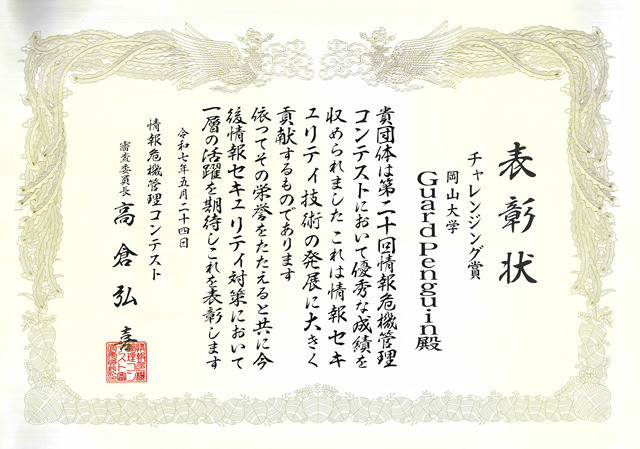 表彰状
チャレンジング賞
岡山大学
GuardPenguin殿
貴団体は第二十回情報危機管理
コンテストにおいて優秀な成績を
収められました これは情報セキ
ュリティ技術の発展に大きく
貢献するものであります
依つてその栄誉をたたえると共に今
後情報セキュリティ対策において
一層の活躍を期待しこれを表彰します
令和七年五月二十四日
情報危機管理コンテスト
審査委員長 高倉弘喜